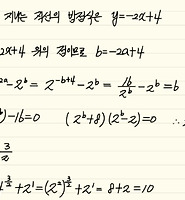 지나는 직선의 방정식은 y=-2x+4
2x+4 위의 점이므로 b=-2a+4
2a-2^b=2^{-b+4}-2^b=\frac{16}{2^b}-2^b=b
b)-16=0 (2^b+8)(2^b-2)=0 ∴
\frac{3}{2}
\frac{3}{2}+2^1=(2^2)^{\frac{3}{2}}+2^1=8+2=10